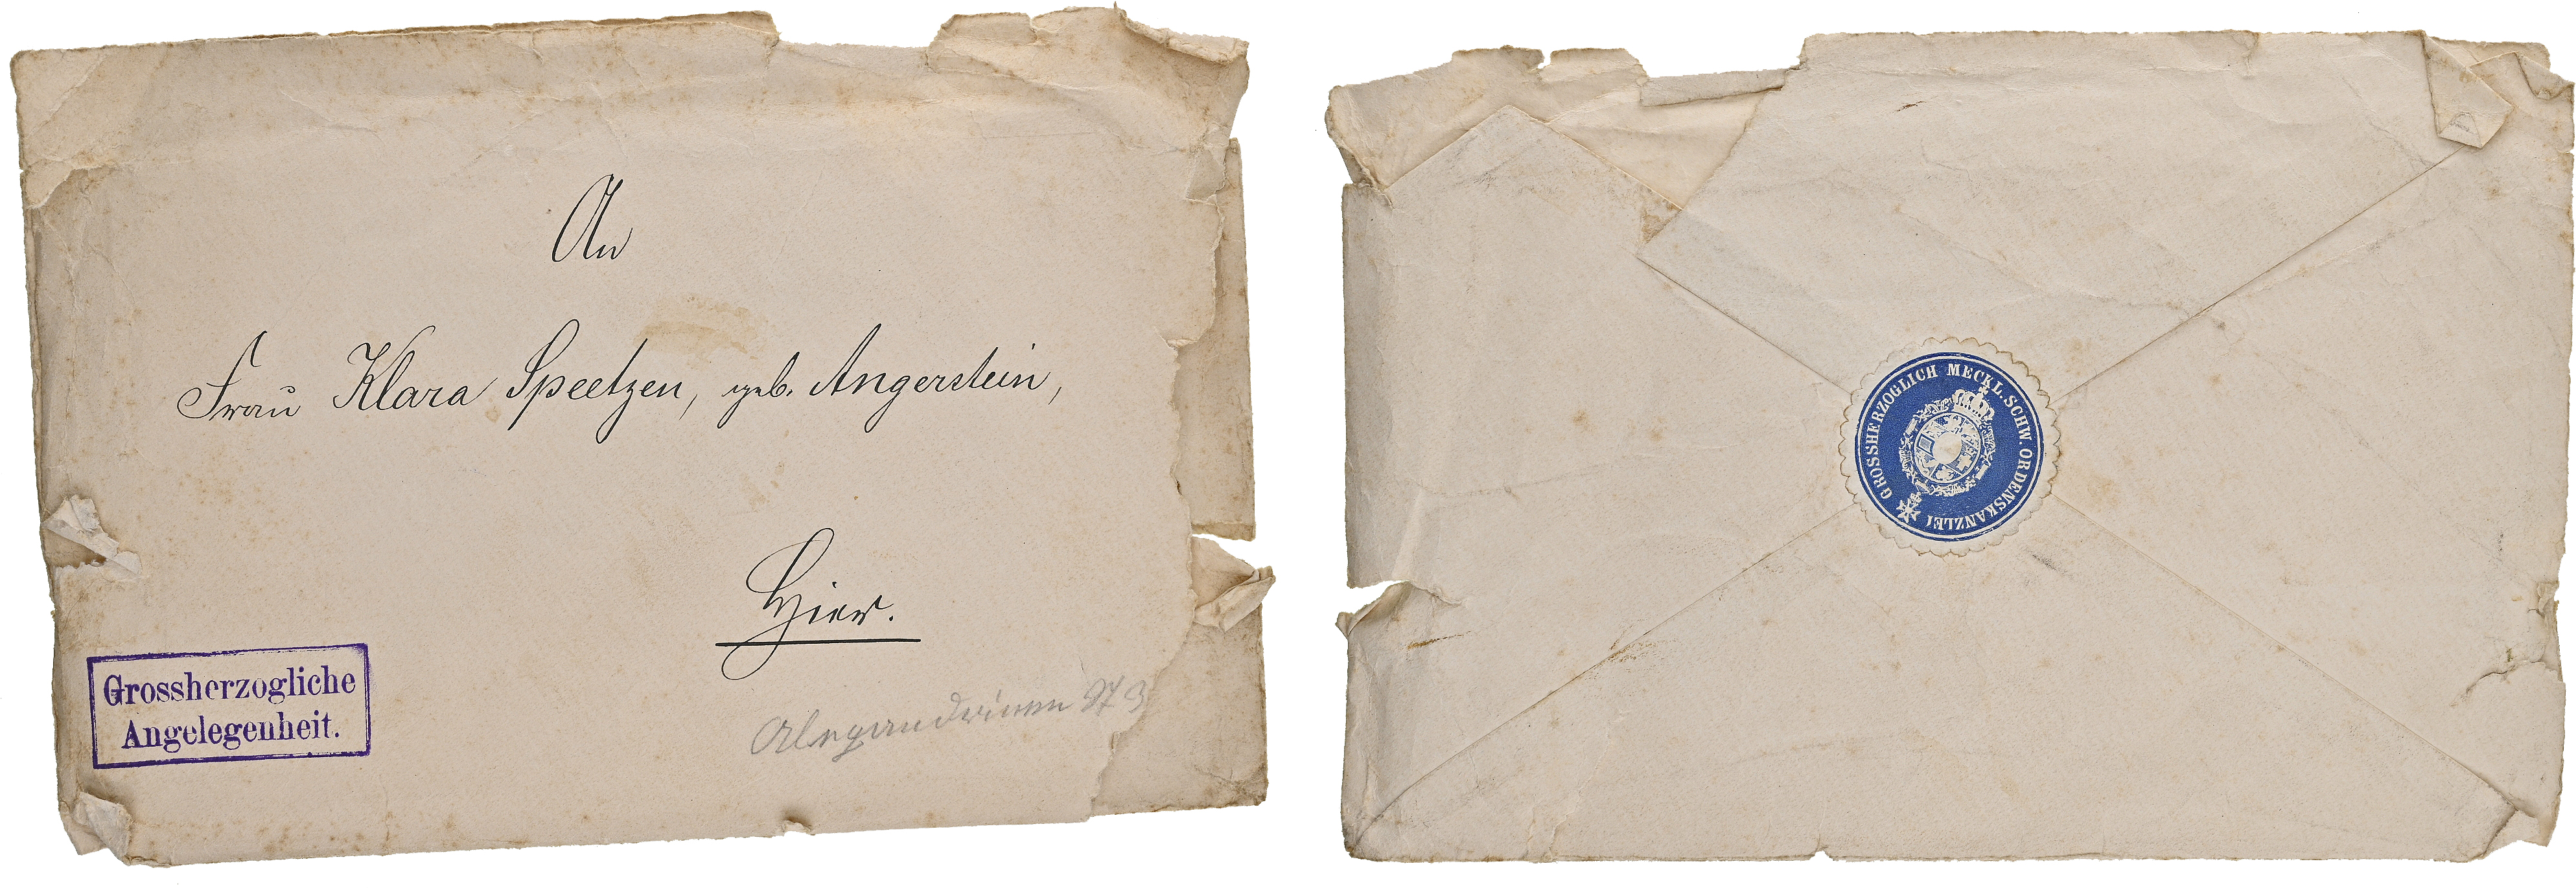 An
Frau Klara Speetzen, geb. Angerstein,
Hier.
Grossherzogliche
Angelegenheit.
Alexandrinen
GROSSHERZOGLICH MECKL. SCHW. ORDENSKANZLEI